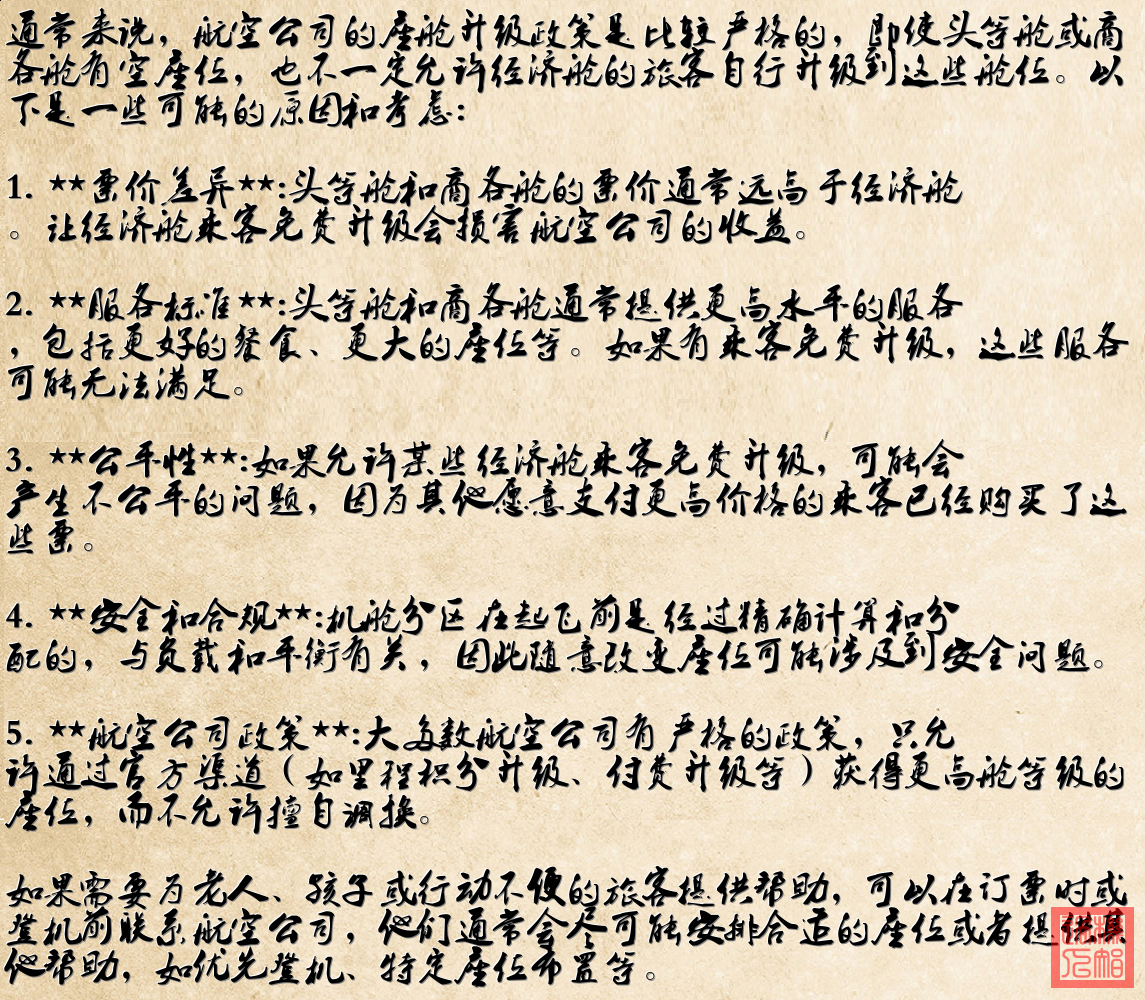 通常来说，航空公司的座舱升级政策是比较严格的，即使头等舱或商
务舱有空座位，也不一定允许经济舱的旅客自行升级到这些舱位。以
下是一些可能的原因和考虑：
1. **票价差异**:头等舱和商务舱的票价通常远高于经济舱
。让经济舱乘客免费升级会损害航空公司的收益。
2. **服务标准**:头等舱和商务舱通常提供更高水平的服务
，包括更好的餐食、更大的座位等。如果有乘客免费升级，这些服务
可能无法满足。
3. **公平性**:如果允许某些经济舱乘客免费升级，可能会
产生不公平的问题，因为其他愿意支付更高价格的乘客已经购买了这
些票。
4. **安全和合规**:机舱分区在起飞前是经过精确计算和分
配的，与负载和平衡有关，因此随意改变座位可能涉及到安全问题。
5. **航空公司政策**:大多数航空公司有严格的政策，只允
许通过官方渠道（如里程积分升级、付费升级等）获得更高舱等级的
座位，而不允许擅自调换。
如果需要为老人、孩子或行动不便的旅客提供帮助，可以在订票时或
登机前联系航空公司，他们通常会尽可能安排合适的座位或者提供其
他帮助，如优先登机、特定座位布置等。